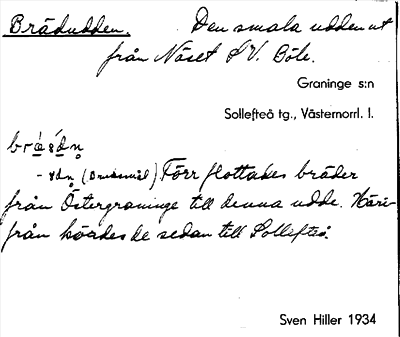 Brädudden. Den smala udden ut
från Näset S V. Böle.
Graninge s:n
Sollefteå tg., Västernorrl. l.
-ʂdn̥ (Ortsmål) Förr flottades bräder
från Östergraninge till denna udde. Häri-
från kördes de sedan till Sollefteå.
Sven Hiller 1934